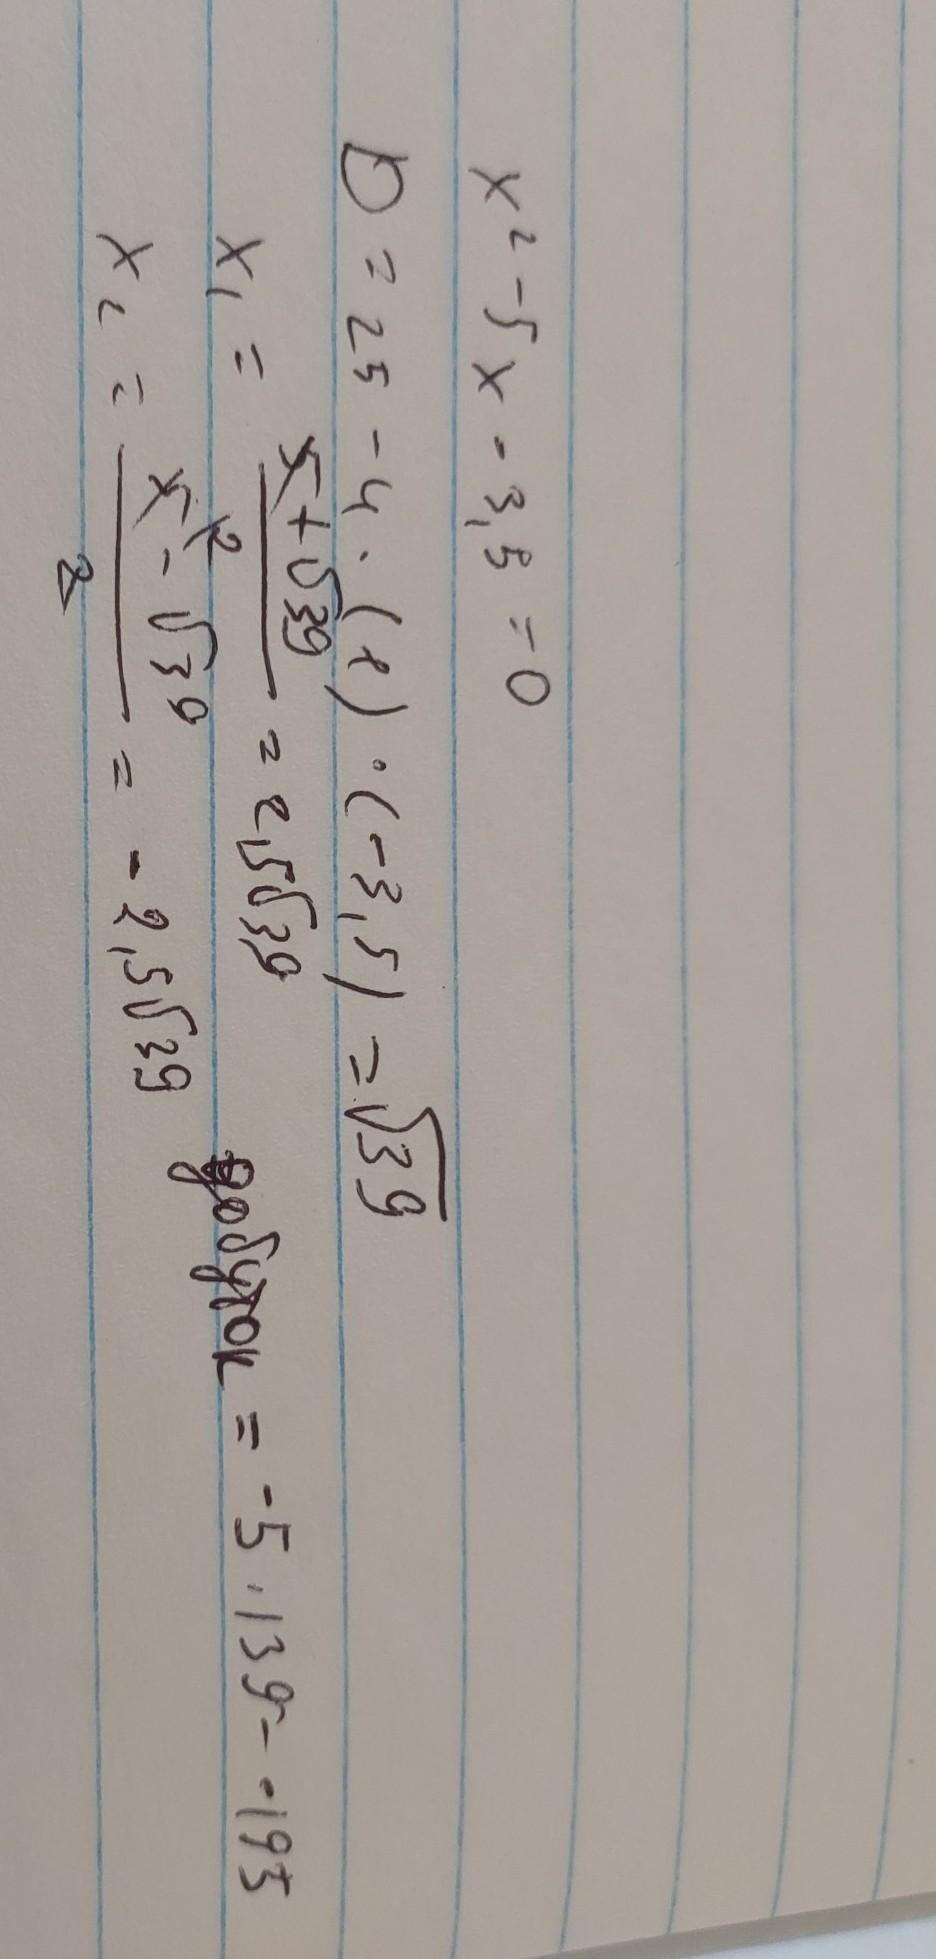 x² - 5x - 3,5 = 0
D = 25 - 4 · (1) · (-3,5) = √39
x₁ = (5 + √39)/2 = 2,5√39
x₂ = (5 - √39)/2 = -2,5√39
добуток = -5 · 139 - -195